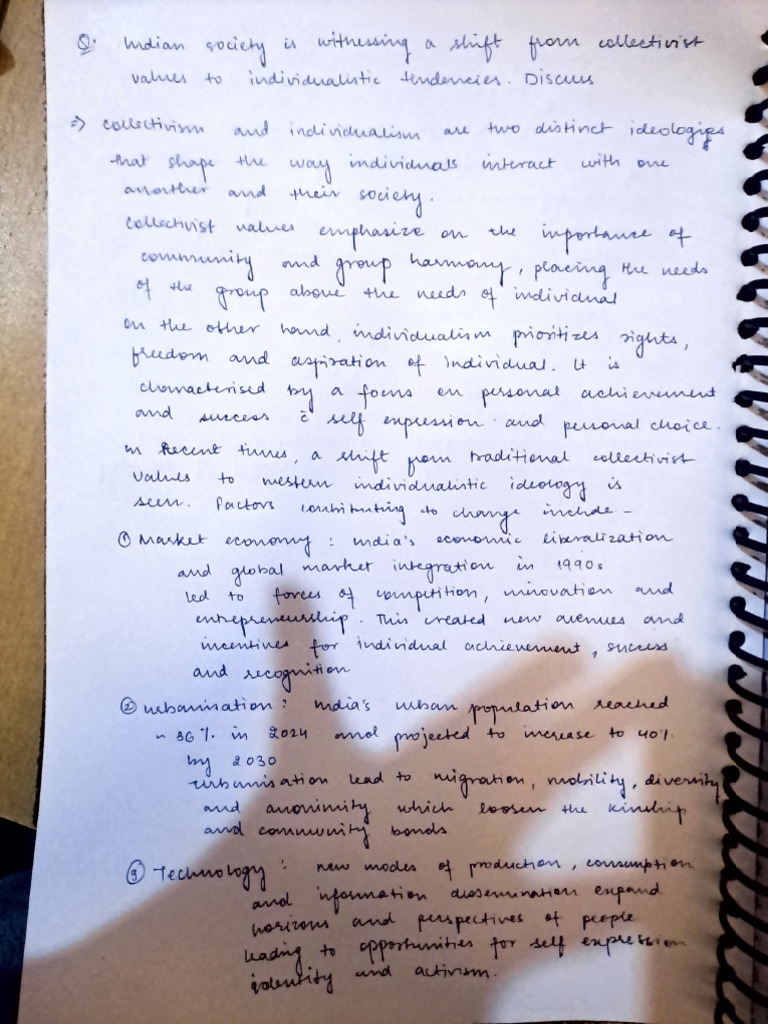 Q. Indian society is witnessing a shift from collectivist
values to individualistic tendencies. Discuss
⇒ collectivism and individualism are two distinct ideologies
that shape the way individuals interact with one
another and their society.
collectivist values emphasize on the importance of
community and group harmony, placing the needs
of the group above the needs of individual
on the other hand, individualism prioritizes rights,
freedom and aspiration of individual. It is
characterised by a focus on personal achievement
and success c̄ self expression and personal choice.
in Recent times, a shift from traditional collectivist
values to western individualistic ideology is
seen. Factors contributing to change include -
① Market economy : India's economic liberalization
and global market integration in 1990s
led to forces of competition, innovation and
entrepreneurship. This created new avenues and
incentives for individual achievement, success
and recognition
② urbanisation : India's urban population reached
~ 36% in 2024 and projected to increase to 40%
by 2030
urbanisation lead to migration, mobility, diversity
and anonimity which loosen the kinship
and community bonds
③ Technology : new modes of production, consumption
and information dissemination expand
horizons and perspectives of people
leading to opportunities for self expression
identity and activism.